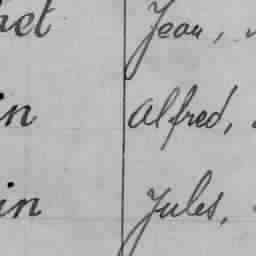 het Jean,
in Alfred,
in Jules,